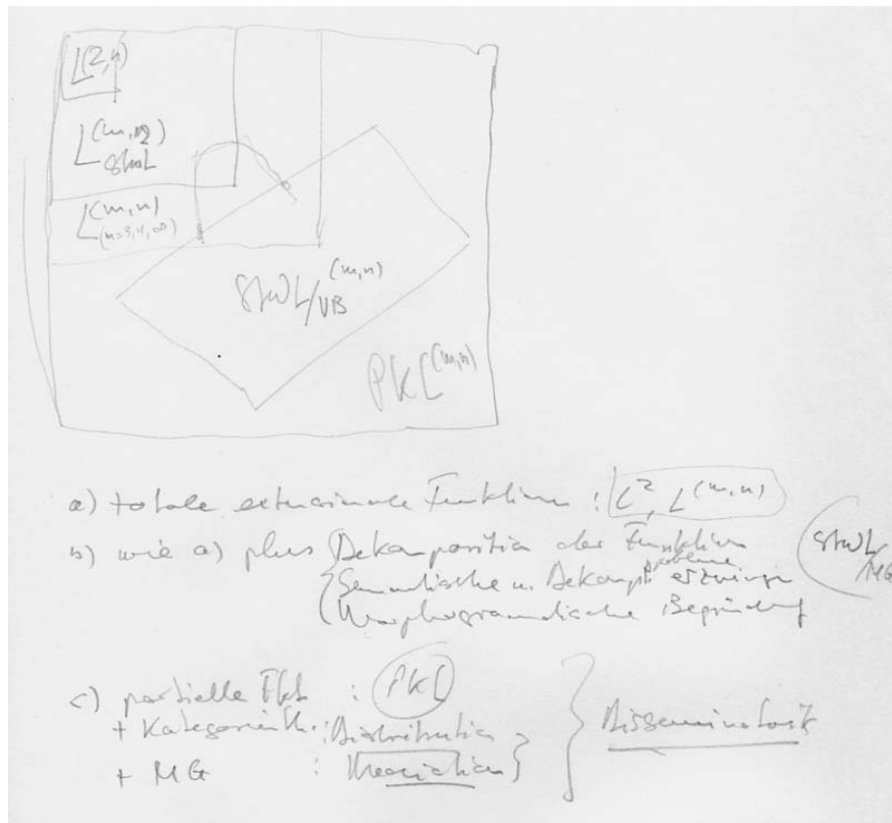 L^(2,n)
L^(m,n)
StwL
L^(m,n)
(m=3,4,∞)
StwL/VB^(m,n)
PKL^(m,n)
a) totale extensionale Funktionen : L², L^(m,n)
b) wie a) plus Dekomposition der Funktion
Semantische u. Dekomp. probleme erzwingen
Morphogrammatische Begründung
StwL/MG
c) partielle Fkt : PKL
+ Kategorienth. : Distribution
+ MG : Mediation
Disseminatorik